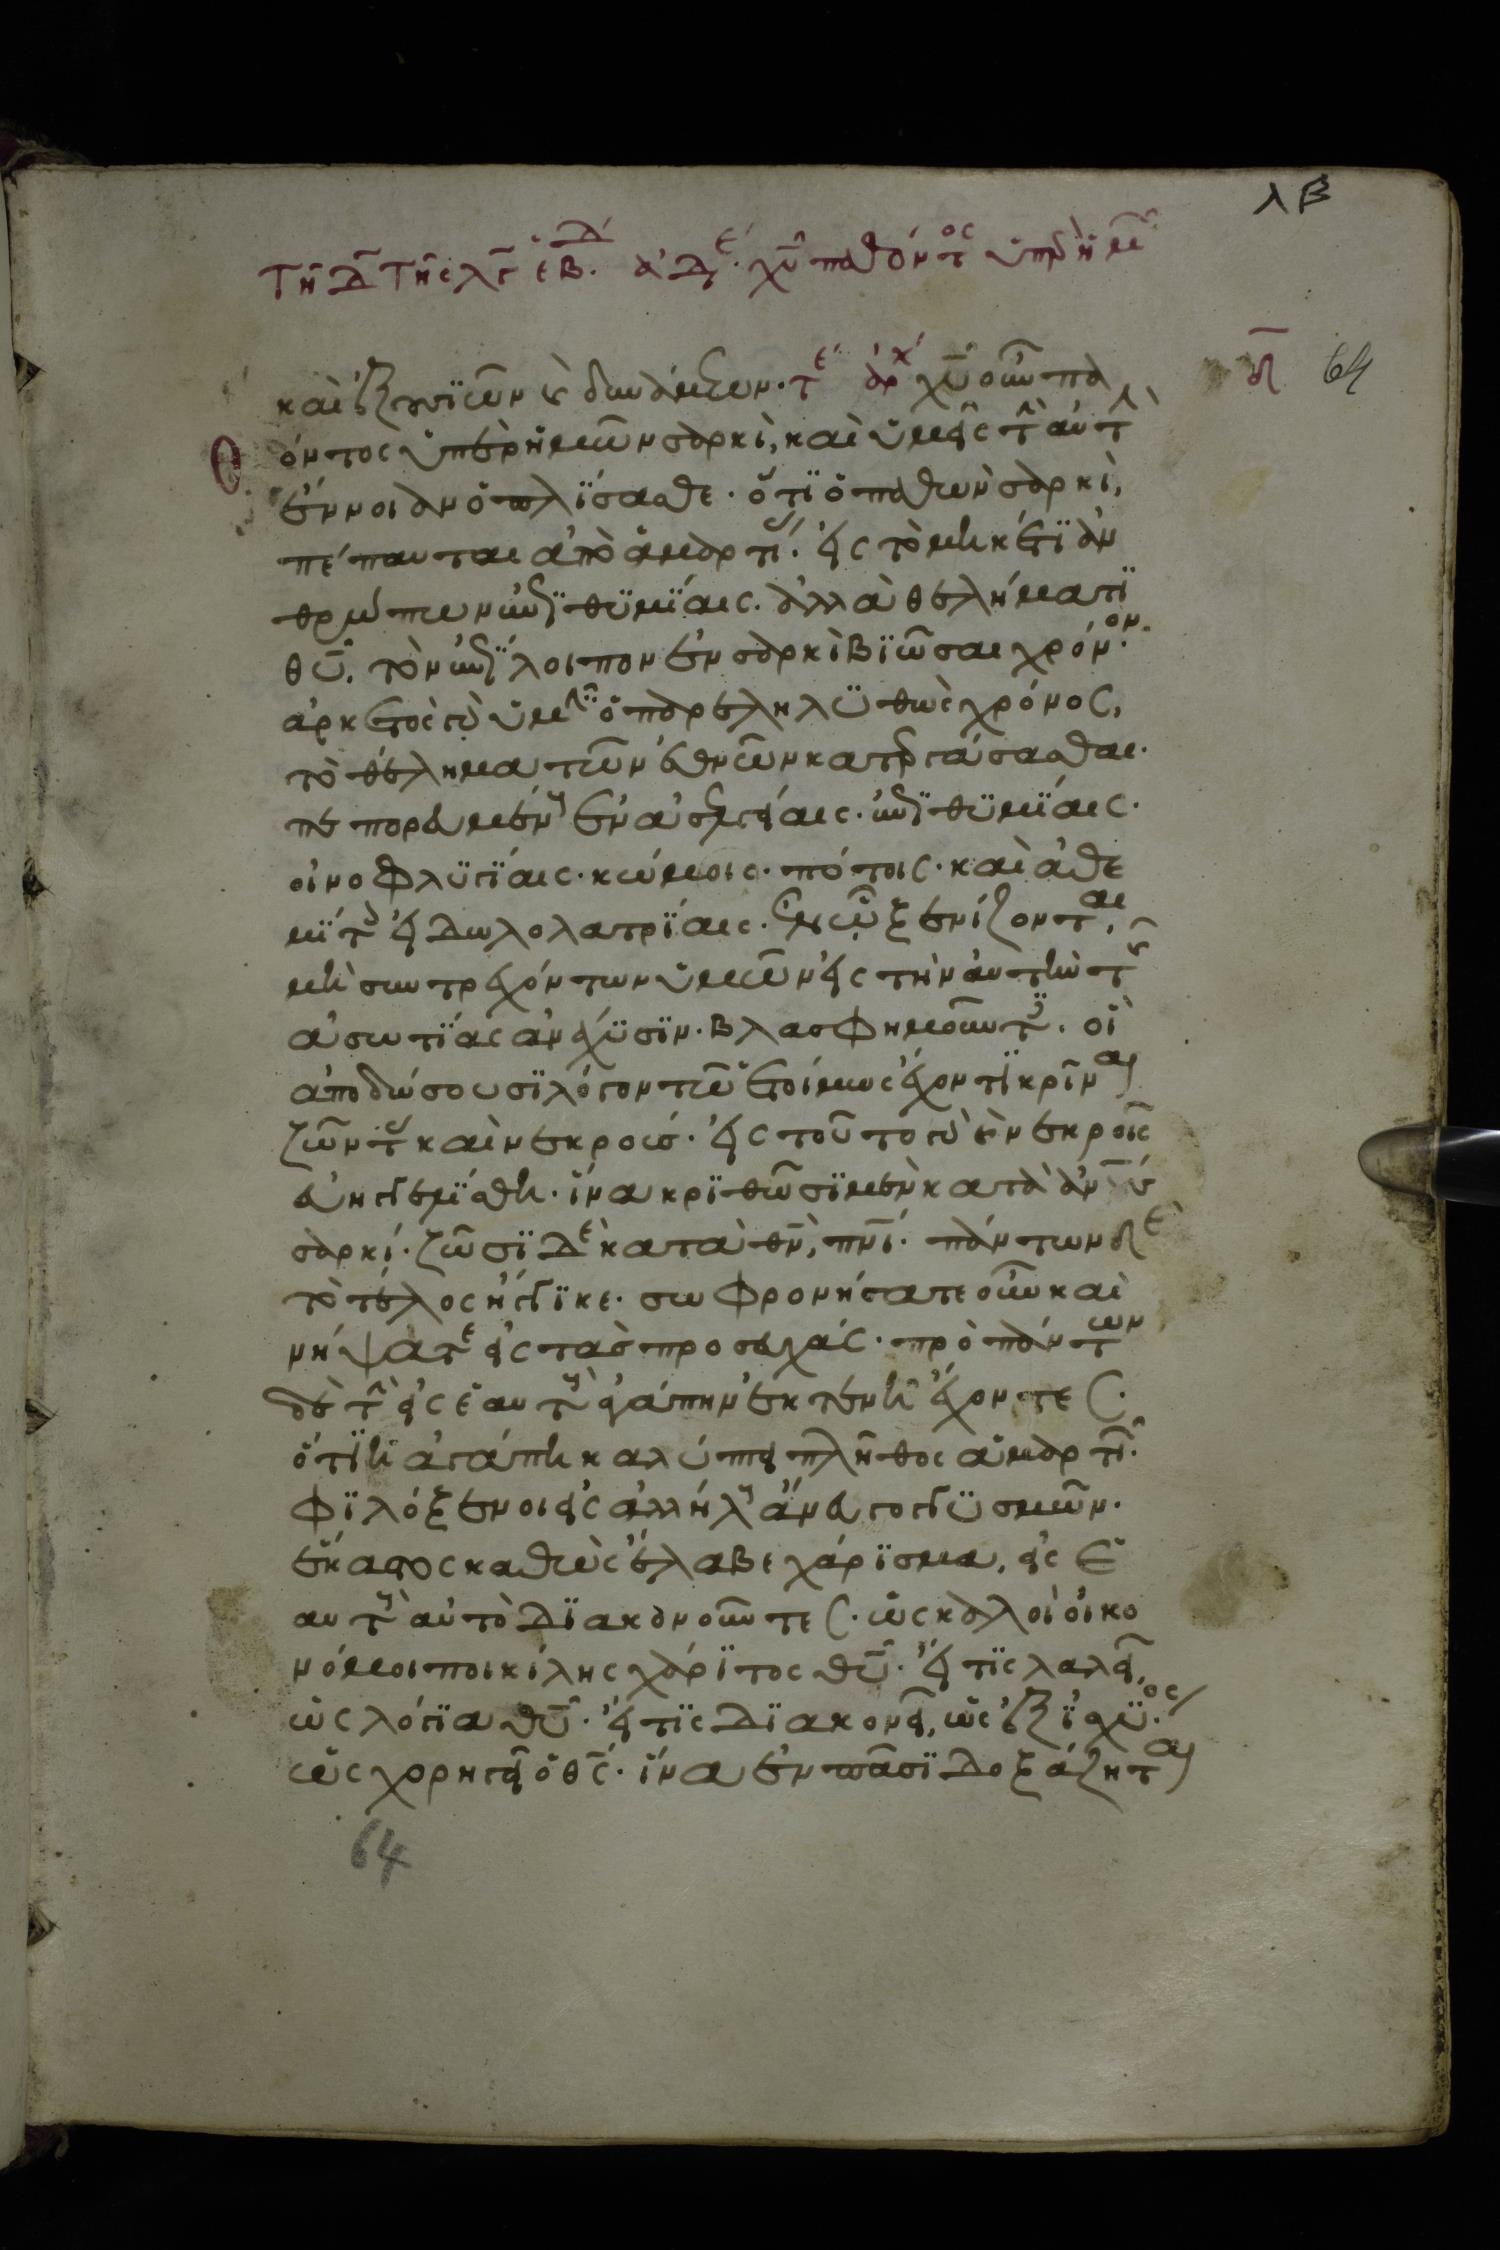 λβ
Τῆ δ τῆς λϛ ἑβδ. ἀδε. χυ παθόντος ὑπὲρ ἡμ
καὶ ἐξουσιῶν καὶ δυνάμεων. τε αρχ χυ οὖν πα
δ 64
θ
όντος ὑπὲρ ἡμῶν σαρκὶ, καὶ ὑμεῖς τὴν αὐτὴν
ἔννοιαν ὁπλίσασθε. ὅτι ὁ παθὼν σαρκὶ,
πέπαυται ἀπὸ ἁμαρτίας. εἰς τὸ μηκέτι ἀν
θρώπων ἐπιθυμίαις. ἀλλὰ θελήματι
θυ, τὸν ἐπίλοιπον ἐν σαρκὶ βιῶσαι χρόνον.
ἀρκετὸς γὰρ ὑμῖν ὁ παρεληλυθὼς χρόνος,
τὸ θέλημα τῶν ἐθνῶν κατεργάσασθαι.
πεπορευμένους ἐν ἀσελγείαις. ἐπιθυμίαις.
οἰνοφλυγίαις. κώμοις. πότοις. καὶ ἀθε
μίτοις εἰδωλολατρίαις. ἐν ᾧ ξενίζονται,
μὴ συντρεχόντων ὑμῶν εἰς τὴν αὐτὴν τῆς
ἀσωτίας ἀνάχυσιν. βλασφημοῦντες. οἳ
ἀποδώσουσι λόγον τῶ ἑτοίμως ἔχοντι κρῖναι
ζῶντας καὶ νεκρούς. εἰς τοῦτο γὰρ καὶ νεκροῖς
εὐηγγελίσθη. ἵνα κριθῶσι μὲν κατὰ ανους
σαρκί. ζῶσι δὲ κατὰ θν, πνι. πάντων δὲ
τὸ τέλος ἤγγικε. σωφρονήσατε οὖν καὶ
νήψατε εἰς τὰς προσευχάς. πρὸ πάντων
δὲ τὴν εἰς ἑαυτοὺς ἀγάπην ἐκτενῆ ἔχοντες.
ὅτι ἡ ἀγάπη καλύπτει πλῆθος ἁμαρτιῶν.
φιλόξενοι εἰς ἀλλήλους ἄνευ γογγυσμῶν.
ἕκαστος καθὼς ἔλαβε χάρισμα, εἰς ἑ
αυτοὺς αὐτὸ διακονοῦντες. ὡς καλοὶ οἰκο
νόμοι ποικίλης χάριτος θυ. εἴ τις λαλεῖ,
ὡς λόγια θυ. εἴ τις διακονεῖ, ὡς ἐξ ἰσχύος
ὡς χορηγεῖ ὁ θς. ἵνα ἐν πᾶσι δοξάζηται
64